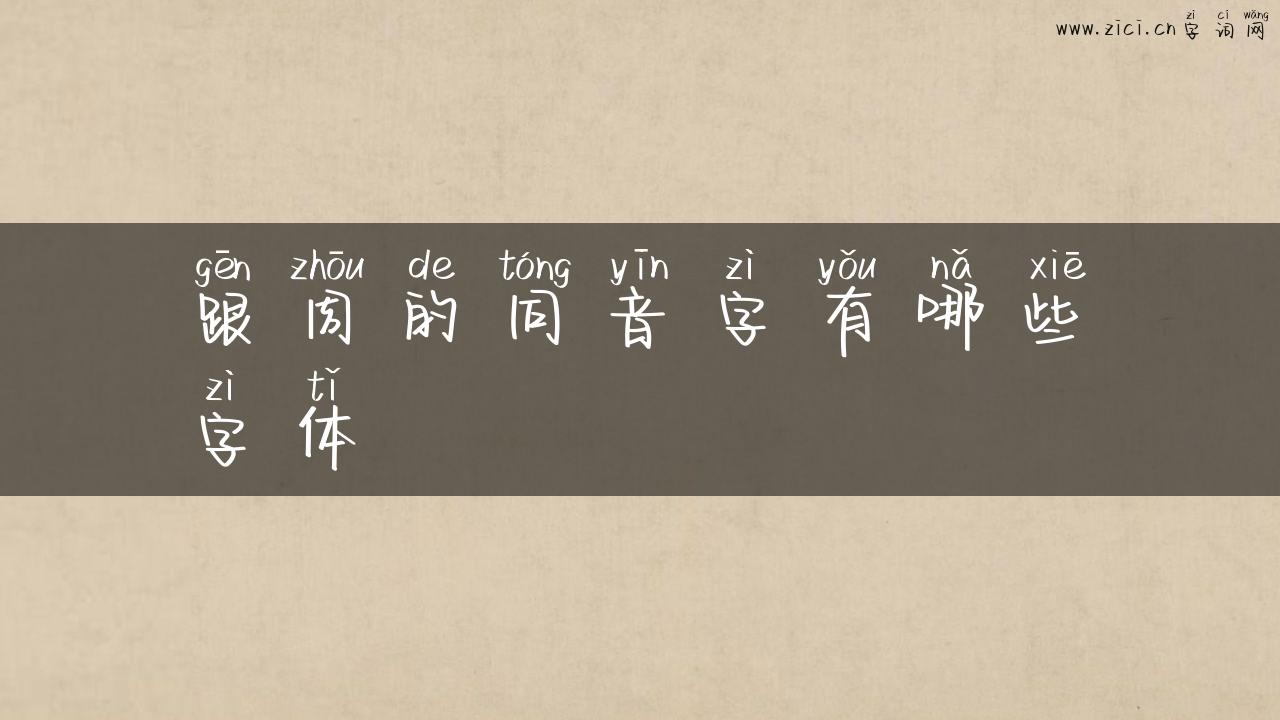 zì cí wǎng
www.zici.cn 字词网
gēn zhōu de tóng yīn zì yǒu nǎ xiē
跟周的同音字有哪些
zì tǐ
字体